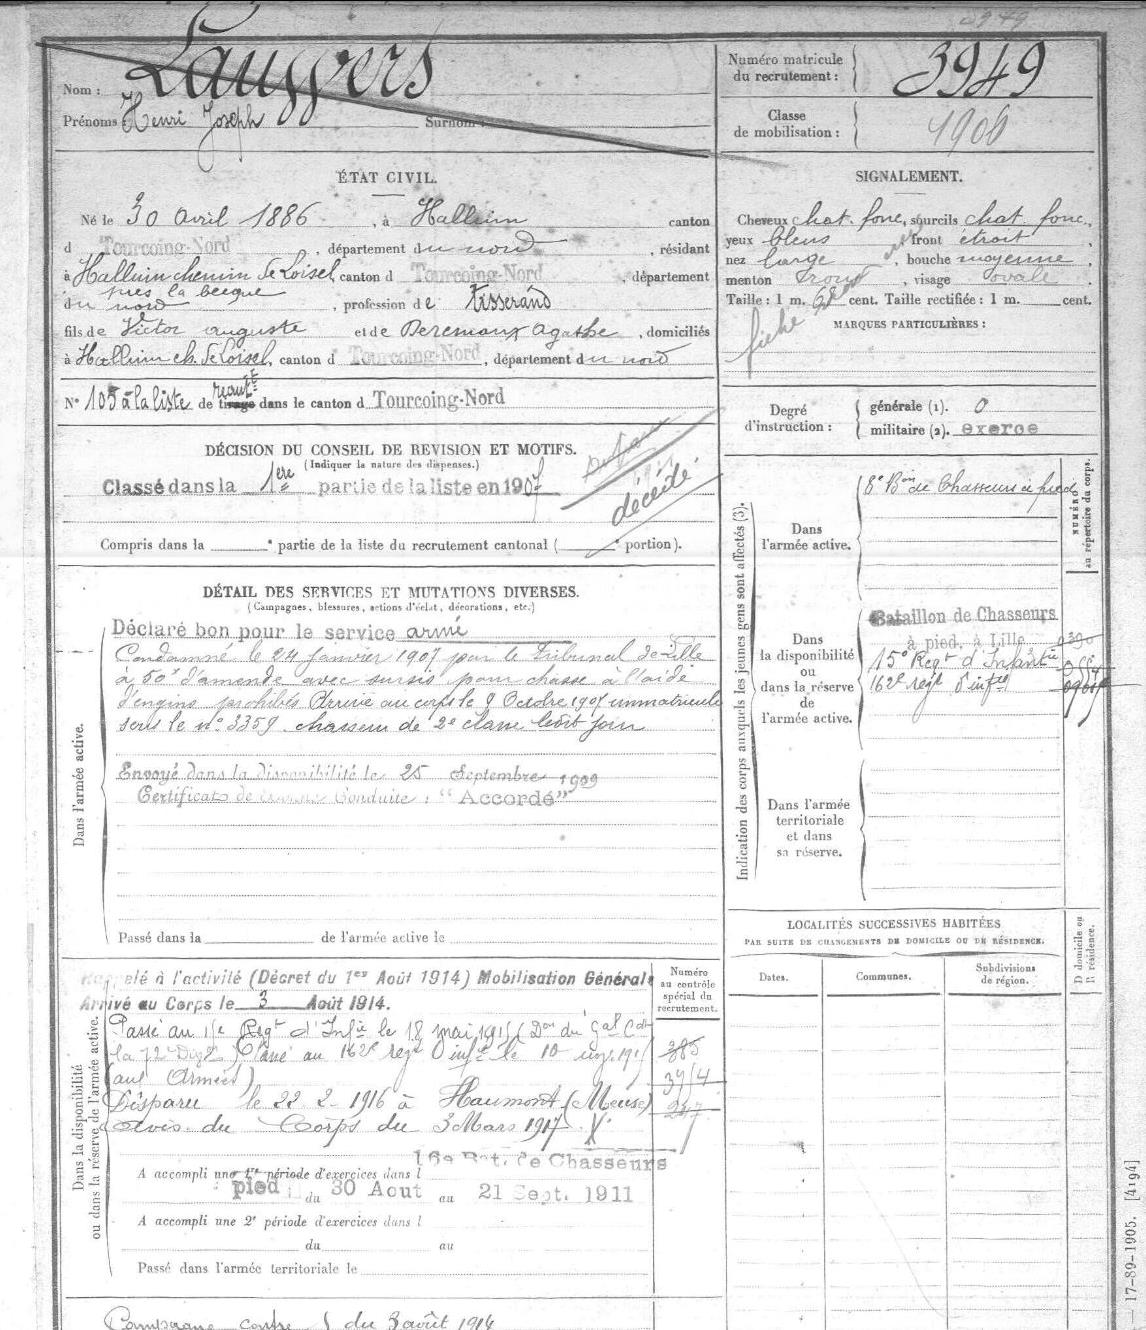 3949
Nom : Lauwers
Prénoms Henri Joseph Surnom :
Numéro matricule
du recrutement : 3949
Classe
de mobilisation : 1906
ÉTAT CIVIL.
Né le 30 avril 1886 , à Halluin canton
d Tourcoing-Nord , département du nord , résidant
à Halluin chemin de Loisel, canton d Tourcoing-Nord , département
près la becque
du nord , profession de tisserand
fils de Victor auguste et de Deremaux Agathe , domiciliés
à Halluin ch. de Loisel, canton d Tourcoing-Nord , département du nord
N° 105 à la liste de recrutt tirage dans le canton d Tourcoing-Nord
DÉCISION DU CONSEIL DE REVISION ET MOTIFS.
(Indiquer la nature des dispenses.)
Classé dans la 1ère partie de la liste en 1907
décédé
Compris dans la partie de la liste du recrutement cantonal ( portion).
DÉTAIL DES SERVICES ET MUTATIONS DIVERSES.
(Campagnes, blessures, actions d'éclat, décorations, etc.)
Dans l'armée active.
Déclaré bon pour le service armé
Condamné le 24 janvier 1907 par le Tribunal de Lille
à 50f d'amende avec sursis pour chasse à l'aide
d'engins prohibés Arrivé au corps le 9 Octobre 1907 immatriculé
sous le n° 3359 chasseur de 2e classe ledit jour
Envoyé dans la disponibilité le 25 Septembre 1909
Certificat de bonne Conduite : "Accordé"
Passé dans la de l'armée active le
Dans la disponibilité
ou dans la réserve de l'armée active.
Rappelé à l'activité (Décret du 1er Août 1914) Mobilisation Générale
Arrivé au Corps le 3 Août 1914.
Passé au 15e Regt d'Infie le 18 mai 1915 (Don du Gal Cdt
la 72e Divon) Passé au 162e regt d'infie le 10 1915
(aux Armées)
Disparu le 22 2 1916 à Haumont (Meuse)
avis du Corps du 3 Mars 1917
Numéro
au contrôle
spécial du
recrutement.
385
3914
247
16e Bat. de Chasseurs
A accompli une 1re période d'exercices dans l
pied du 30 Aout au 21 Sept. 1911
A accompli une 2e période d'exercices dans l
du au
Passé dans l'armée territoriale le
Campagne contre du 3 août 1914
SIGNALEMENT.
Cheveux chat. fonc, sourcils chat. fonc,
yeux bleus front étroit ,
nez large , bouche moyenne ,
menton rond , visage ovale .
Taille : 1 m. cent. Taille rectifiée : 1 m. cent.
MARQUES PARTICULIÈRES :
fiche
Degré
d'instruction :
générale (1). 0
militaire (2). exerce
Indication des corps auxquels les jeunes gens sont affectés (3).
NUMÉRO
au répertoire du corps.
Dans
l'armée active.
8e Bon de Chasseurs à pied
Dans
la disponibilité
ou
dans la réserve
de
l'armée active.
Bataillon de Chasseurs
à pied, à Lille
15e Regt d'Infanterie
162e regt d'infie
Dans l'armée
territoriale
et dans
sa réserve.
LOCALITÉS SUCCESSIVES HABITÉES
PAR SUITE DE CHANGEMENTS DE DOMICILE OU DE RÉSIDENCE.
Dates.
Communes.
Subdivisions
de région.
D domicile ou
R résidence.
— 17-89-1905. [4194]